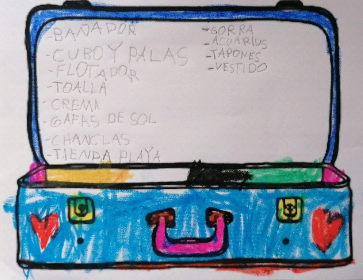 -BAÑADOR
-CUBO Y PALAS
-FLOTADOR
-TOALLA
-CREMA
-GAFAS DE SOL
-CHANCLAS
-TIENDA PLAYA
-GORRA
-ACUARIUS
-TAPONES
-VESTIDO